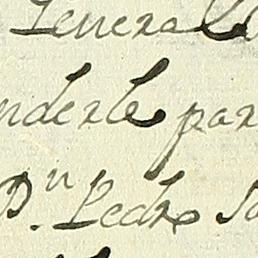 Genera
nderle par
Dn. Pedro